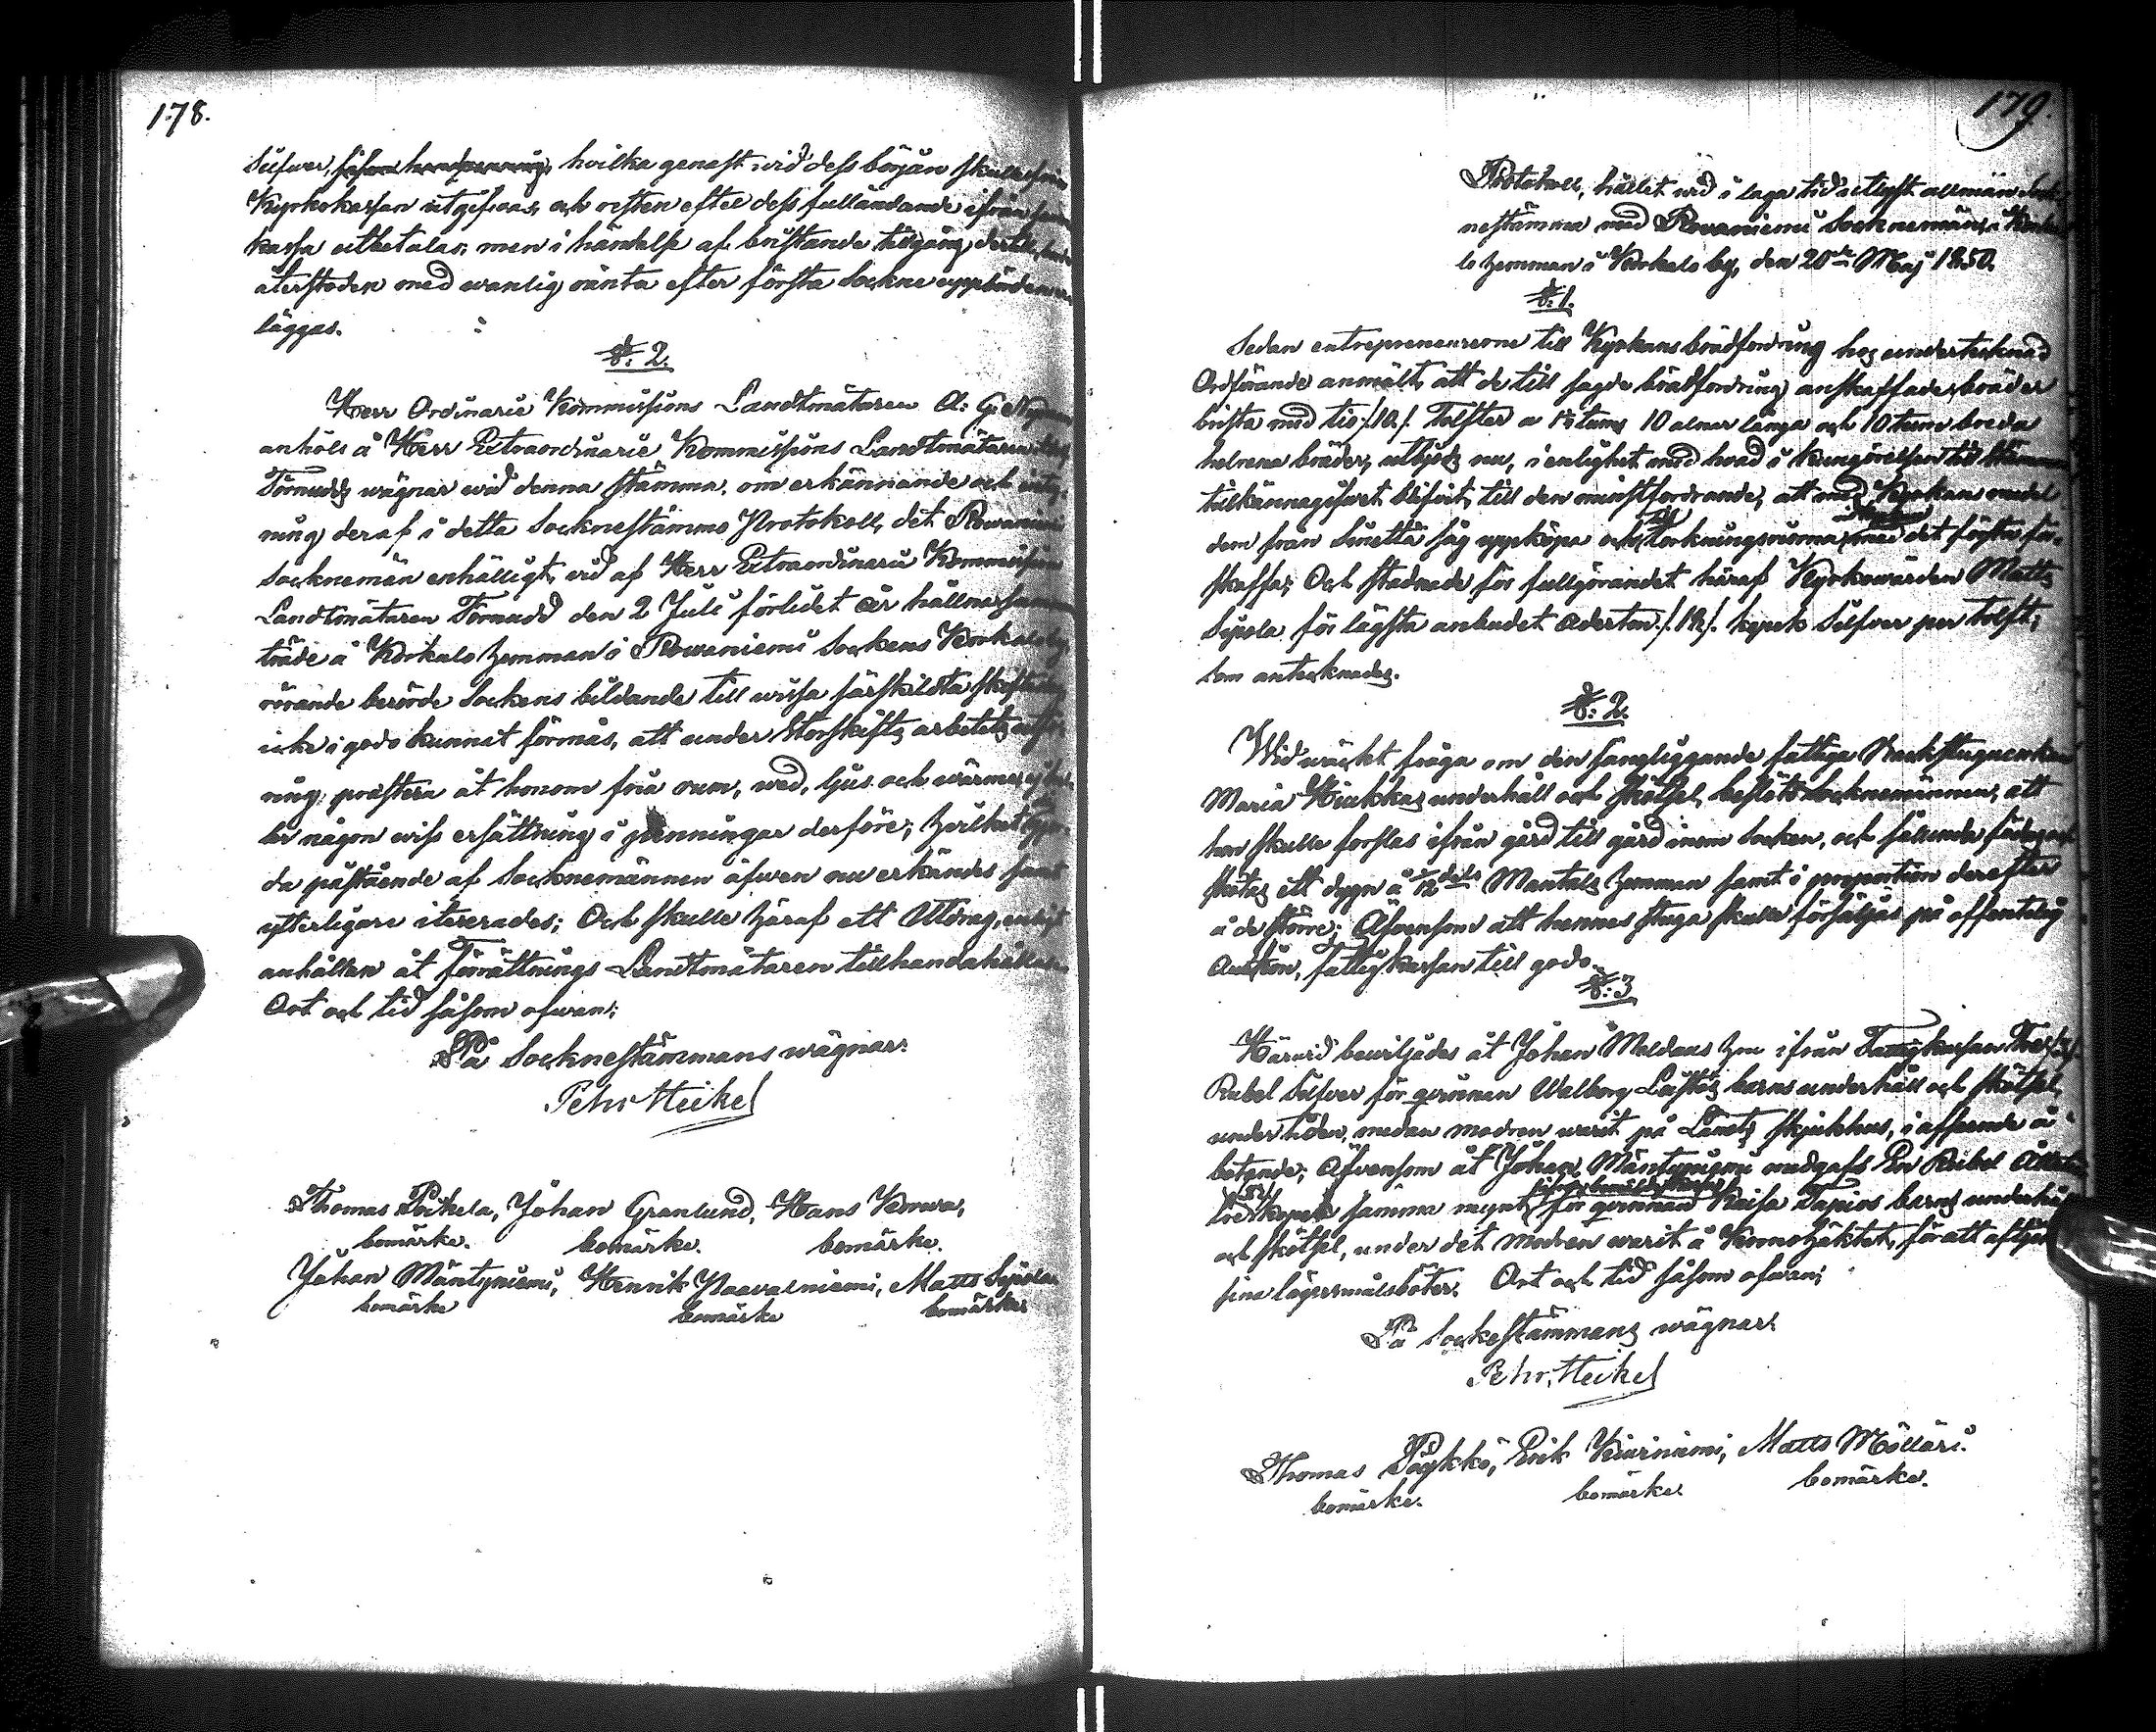 178.
Silfwer, hvilka genast vid dess början skulle ifrån
Kyrkokassan utgifvas, och resten efter dess fulländande ifrån samma
kassa utbetalas; men i händelse af bristande tillgång dertill,
återstoden med wanlig ränta efter första Sockne uppbörden er-
läggas.
§: 2.
Herr Ordinarie Kommissions Landtmätaren A: G: Nyman
anhöll å Herr Extraordinarie Kommissions Landtmätaren
Törnudds wägnar wid denna stämma, om erkännande och intyg-
ning deraf i detta Socknestämmo Protokoll, det Rovaniemi
Socknemän enhälligt, vid af Herr Extraordinarie Kommissions
Landtmätaren Törnudd den 2 Juli förlidet år hållna samman-
träde å Korkalo hemman i Rowaniemi Sockens Korkalo by
rörande berörde Sockens bildande till wissa särskildta skifteslag
icke i godo kunnat förmås, att under Storskifts arbetets
ning, prestera åt honom fria rum, wed, ljus och wärme, ej hel-
ler någon wiss ersättning i penningar derföre; hvilket
da påstående af Socknemännen äfwen nu erkändes samt
ytterligare itererades; Och skulle häraf ett Utdrag, enligt
anhållan åt Förrättnings Landtmätaren tillhandahållas.
Ort och tid såsom ofwan;
På Socknestämmans wägnar:
Pehr Heikel
Thomas Poikela, Johan Granlund, Hans Konwa,
bomärke. bomärke. bomärke.
Johan Mäntyniemi, Henrik Paavalniemi, Matts Sipola
bomärke bomärke bomärke
179.
Protokoll, hållet wid i laga tid utlyst allmän Sock-
nestämma med Rovaniemi Socknemän, å Korka-
lo hemman i Korkalo by, den 20de Maj 1850.
§: 1.
Sedan entrepreneurerne till Kyrkans brädfordring hos undertecknad
Ordförande anmält, att de till sagde brädfordring anskaffade bräder
brista med tio /:10:/ Tolfter a 1½ tums 10 alnar långa och 10 tum breda
helrena bräder, utbjöds nu, i enlighet med hvad i kungörelsen till stämman
tillkännagifwet blifvit, till den minstfordrande, att med Kyrkans medel
dem från Sinettä såg uppköpa och till torkningsrierna med det första för-
skaffa; Och stadnade för fullgörandet häraf Kyrkowärden Matts
Sipola för lägsta anbudet aderton /:18:/ kopek Silfver per tolft;
som antecknades.
§: 2.
Wid wäckt fråga om den sängliggande fattiga Backstuguenkan
Maria Kiukkas underhåll och skötsel, beslöto Socknemännen, att
hon skulle forslas ifrån gård till gård inom Socken, och sålunda födas och
skötas ett dygn å 1/12 dels Mantals hemman samt i proportion derefter
å de större; Äfvensom att hennes stuga skulle försäljas på offentelig
Auktion, Fattigkassan till godo.
§: 3
Härvid bewiljades åt Johan Moldaas hm ifrån Fattigkassan Tre /:3:/
Rubel Silfver för qvinnan Walborg barns underhåll och skötsel,
under tiden, medan modren warit på Länets Sjukhus, i affseende å
betande; Äfvensom åt Johan Mäntyniemi medgafs En Rubel Åttatio
tre kopek samma mynt för qvinnan Kaisa Tapios barns underhåll
och skötsel, under det modren warit å Kronohäktet, för att aftjena
sina lägersmålsböter. Ort och tid såsom ofwan;
På Sockestämmans wägnar:
Pehr Heikel
Thomas Pöykkö, Erik Kiurniemi, Matts Mölläri.
bomärke. bomärke. bomärke.